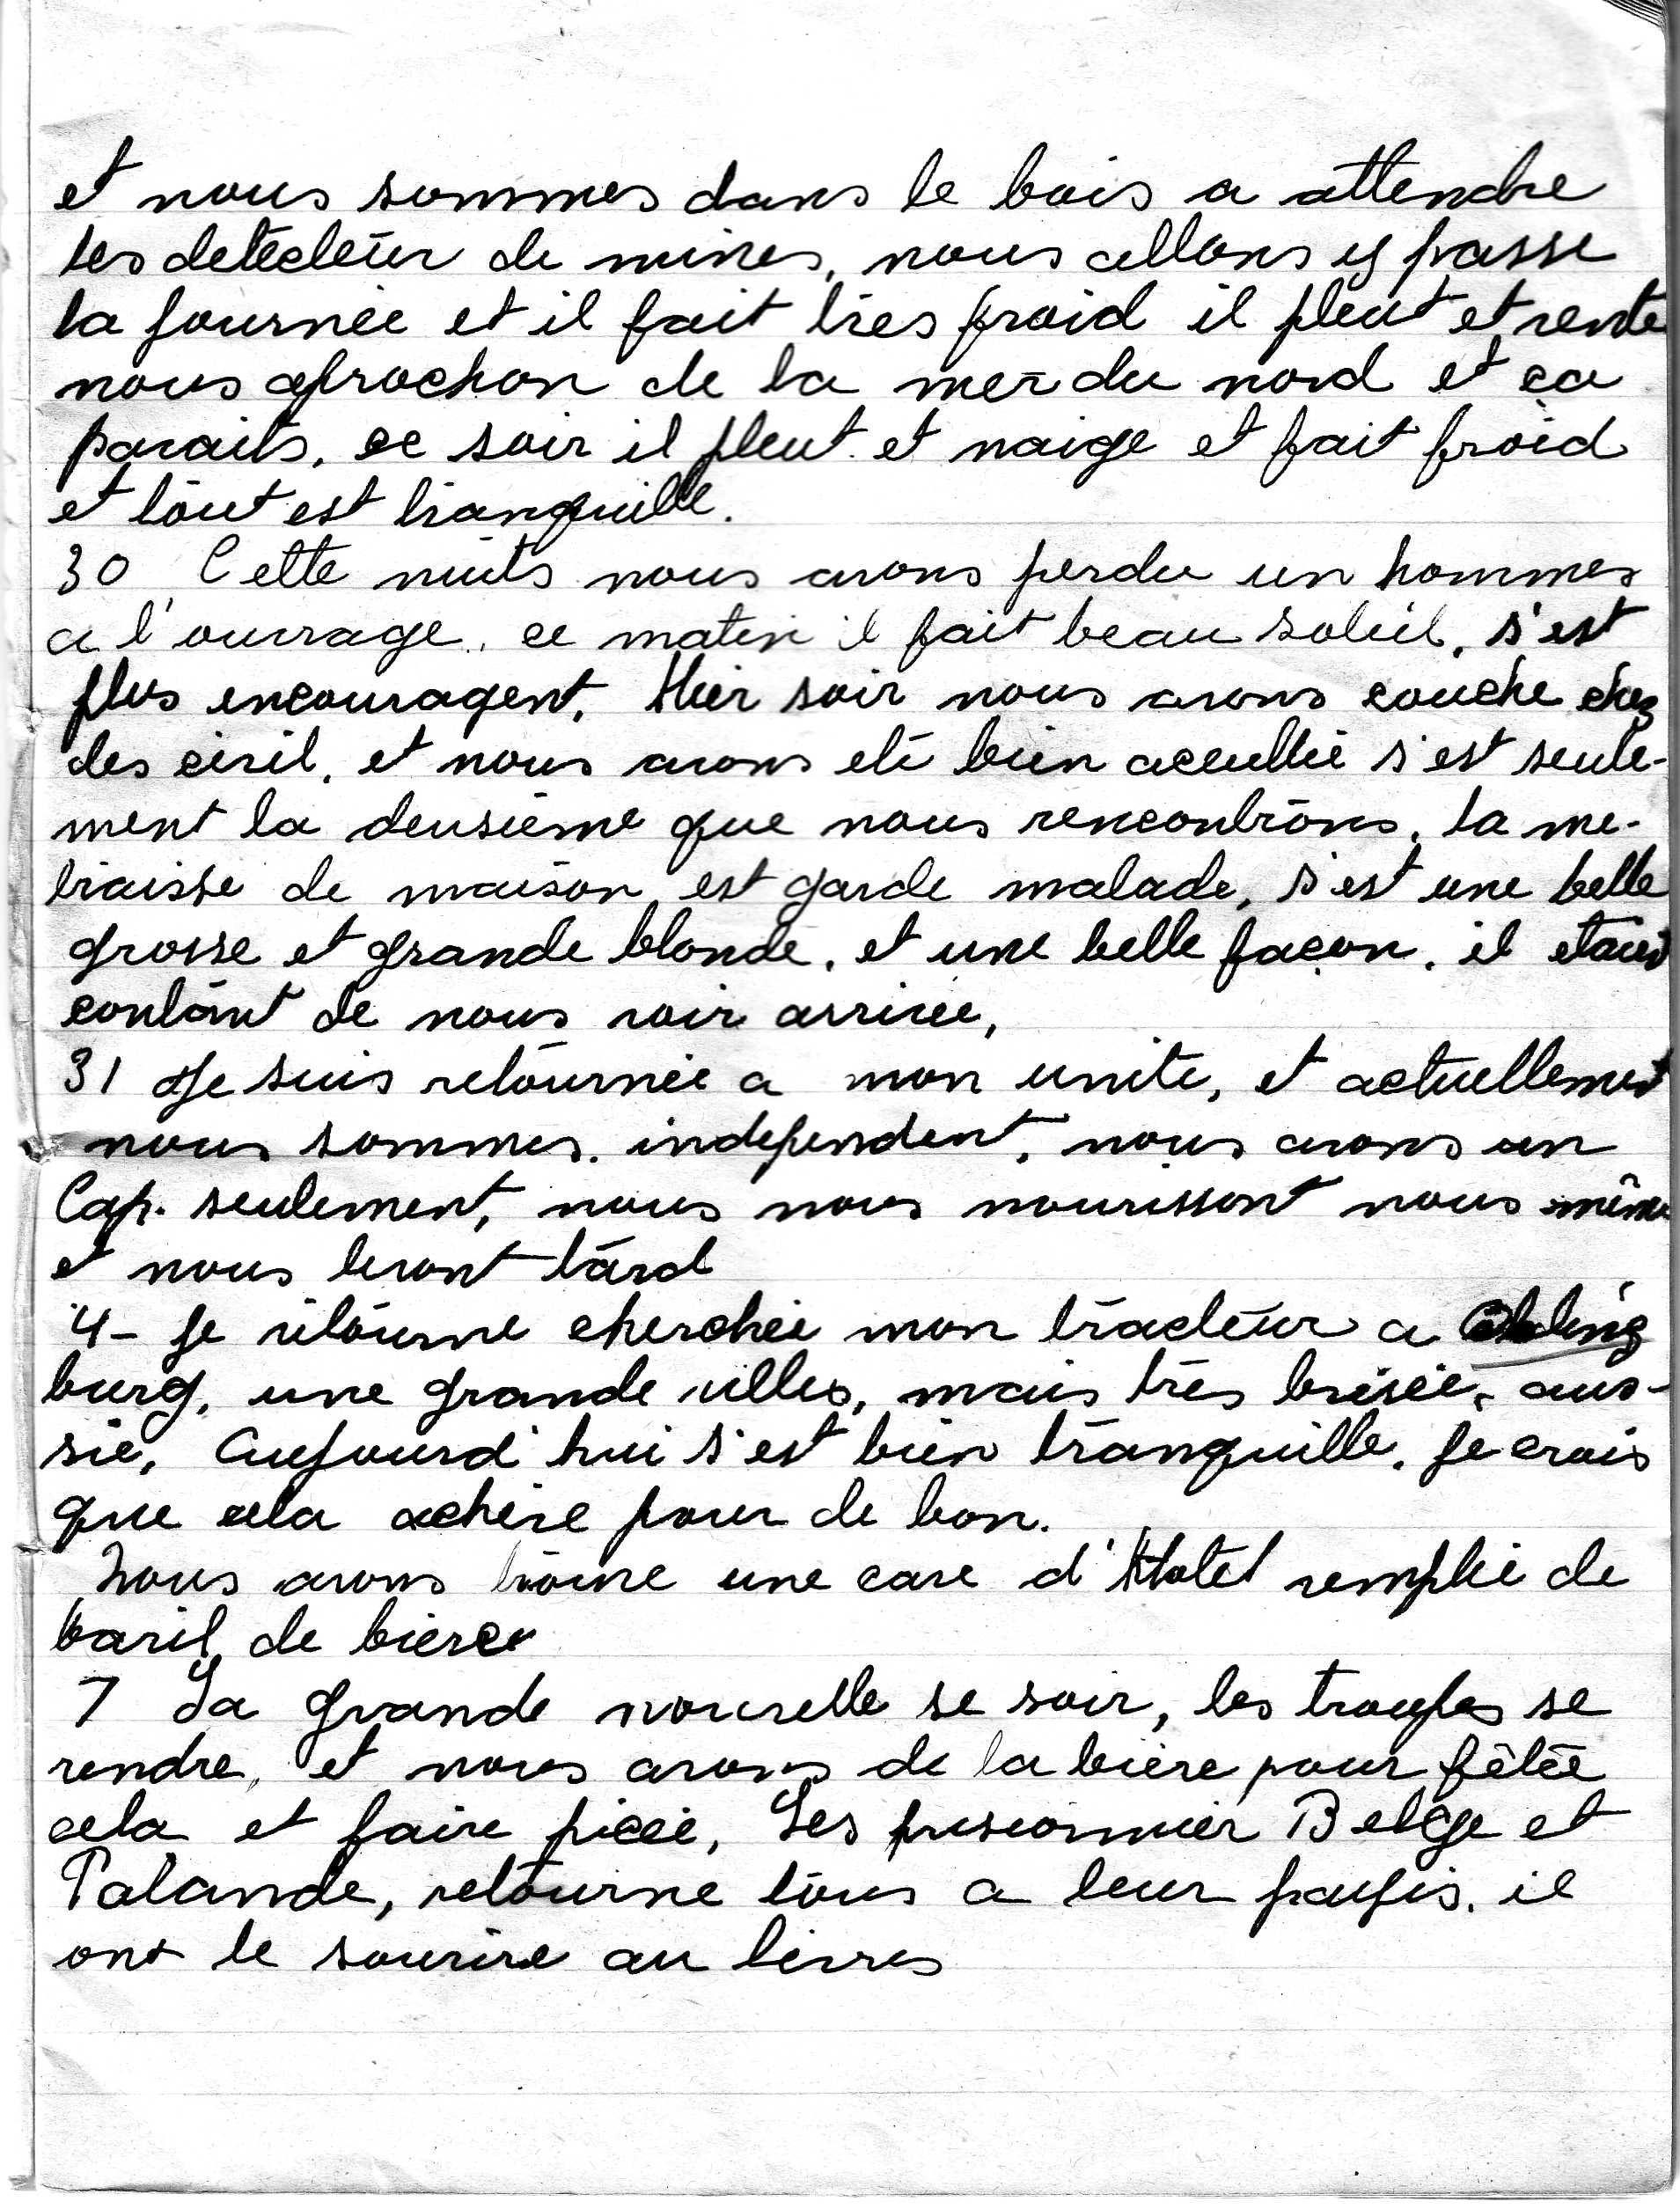 et nous sommes dans le bois a attendre
les detecteur de mines, nous allons y passe
la journée et il fait très froid il pleut et vente
nous aprochon de la mer du nord et ça
paraits. ce soir il pleut et naige et fait froid
et tout est tranquille.
30 Cette nuits nous avons perdu un hommes
a l'ouvrage. ce matin il fait beau soleil. s'est
plus encouragent. Hier soir nous avons couche chez
des civil. et nous avons eté bien aceullié s'est seule-
ment la deusième que nous rencontrons. la me-
traisse de maison est garde malade, s'est une belle
grosse et grande blonde. et une belle façon. il etait
contant de nous voir arrivée,
31 Je suis retournée a mon unite, et actuellement
nous sommes. independent. nous avons un
Cap. seulement, nous nous nourissont nous même
et nous levont tard
4- Je retourne cherchée mon tracteur a
burg. une grande villes, mais très brisée, aus-
sie, Aujourd'hui s'est bien tranquille. Je crois
que cela achève pour de bon.
Nous avons trouve une cave d'Hotel remplie de
baril de biere
7 La grande nouvelle se soir, les troupes se
rendre, et nous avons de la bière pour fêtée
cela et faire picée, Les prisionnier Belge et
Polande, retourne tous a leur payis. il
ont le sourire au lèvres